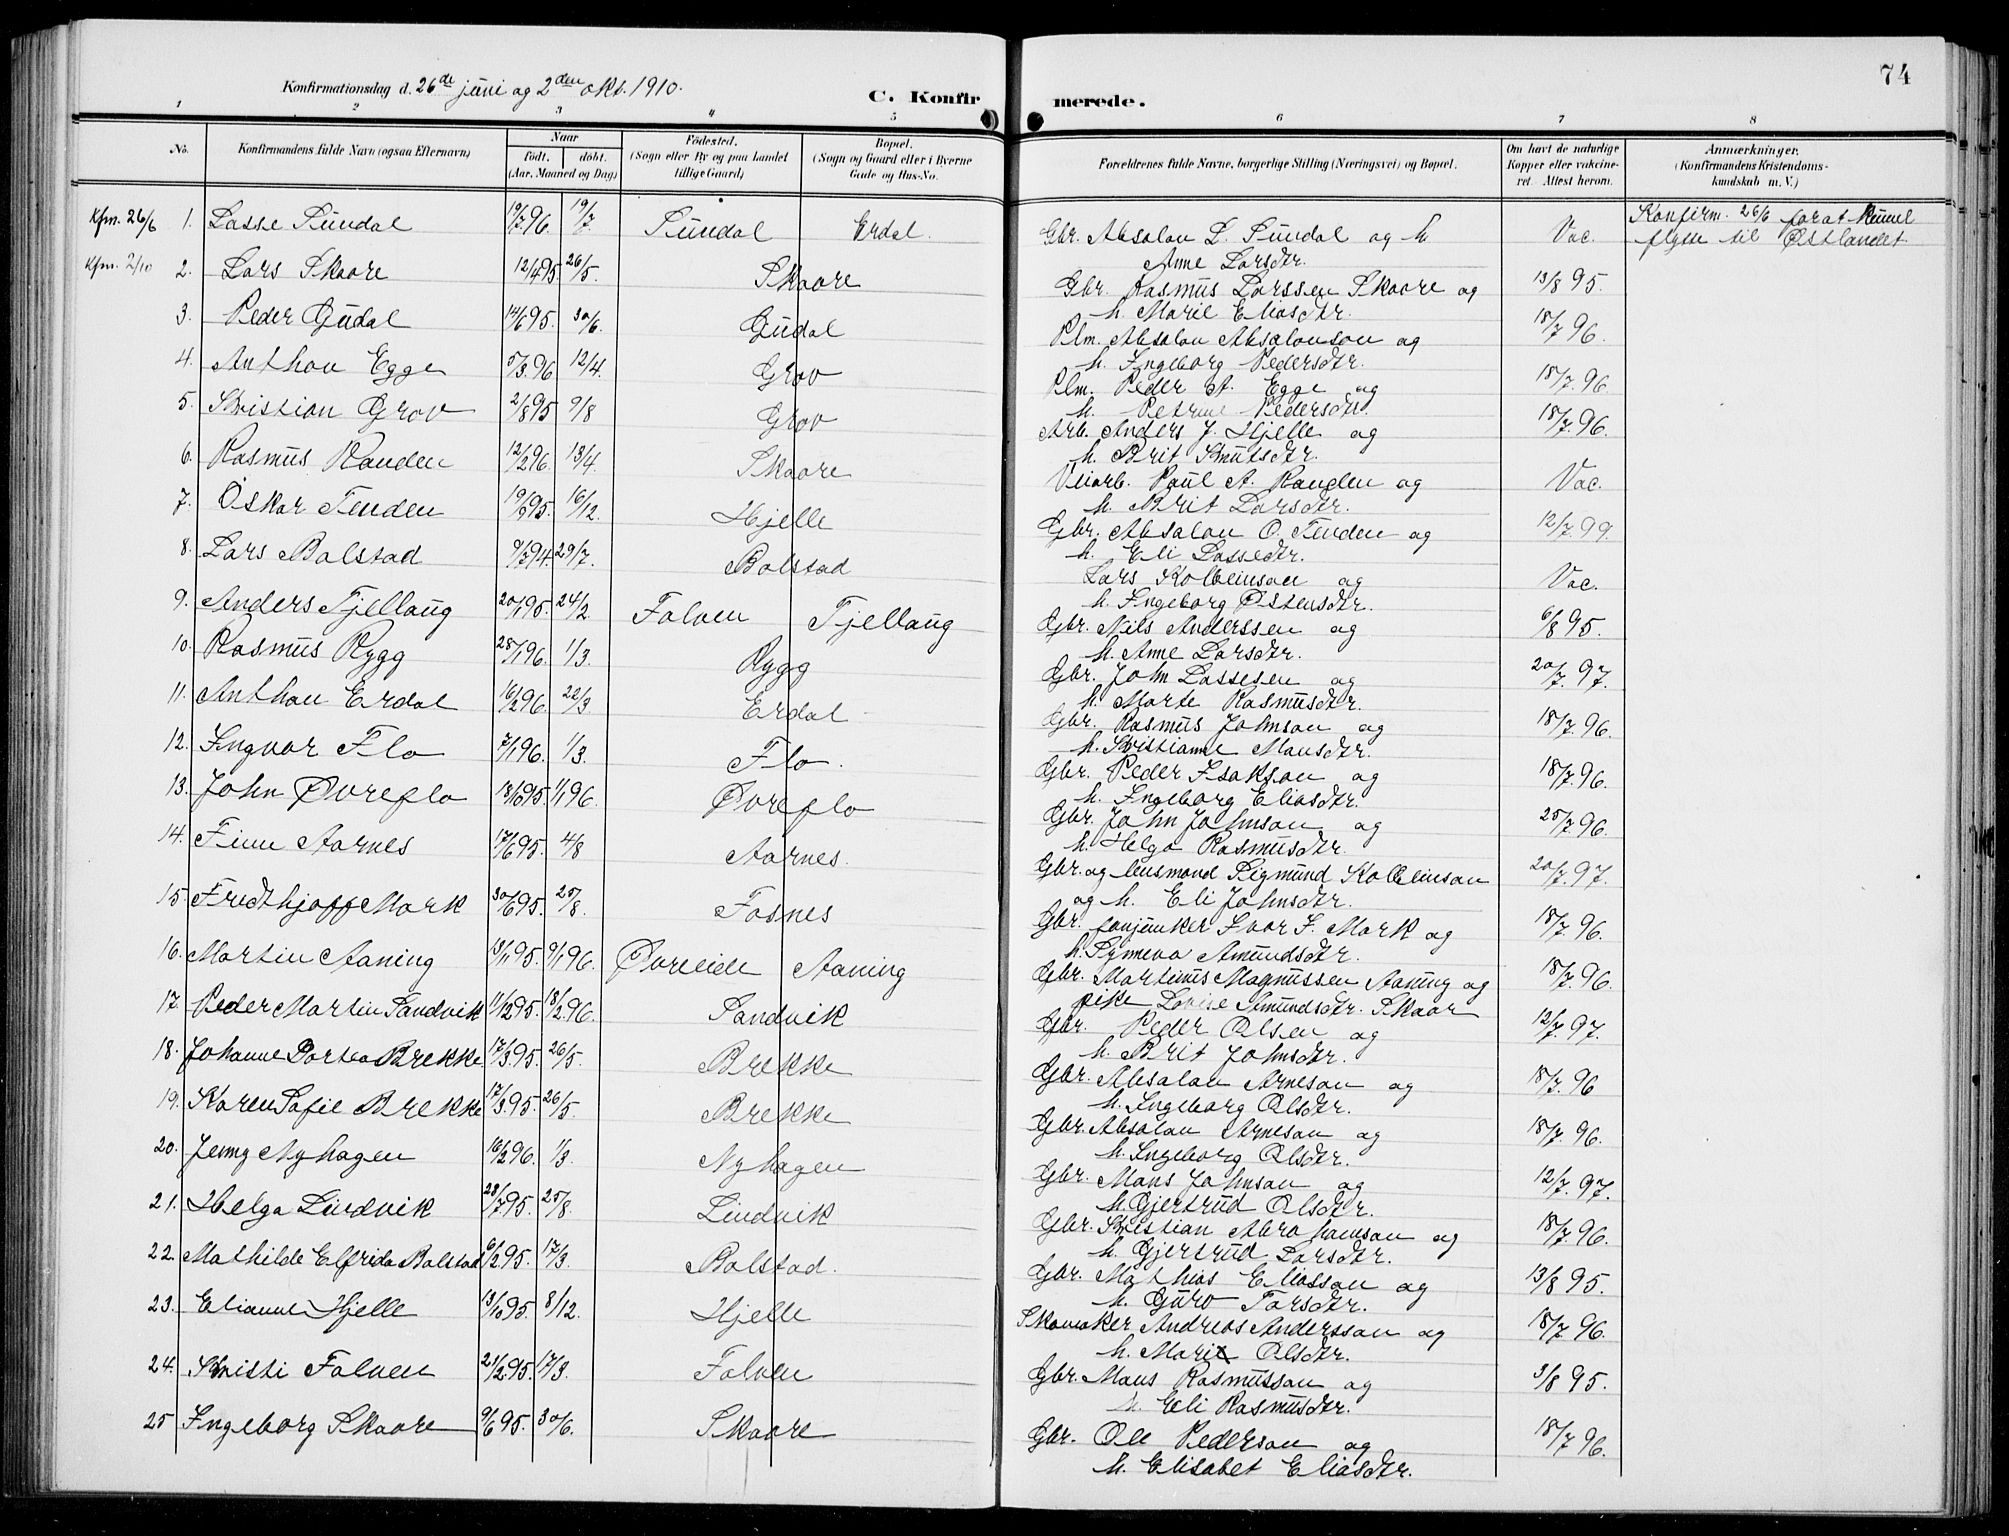 74
Konfirmationsdag d. 26de juni og 2den okt. 1910.
C. Konfirmerede.
1 2 3 4 5 6 7 8
No.
Konfirmandens fulde Navn (ogsaa Efternavn)
Naar
født. døbt.
(Aar, Maaned og Dag)
Fødested.
(Sogn eller By og paa Landet
tillige Gaard)
Bopæl.
(Sogn og Gaard eller i Byerne
Gade og Hus-No.
Forældrenes fulde Navne, borgerlige Stilling (Næringsvei) og Bopæl.
Om havt de naturlige
Kopper eller vakcine-
ret. Attest herom.
Anmærkninger.
(Konfirmandens Kristendoms-
kundskab m. V.)
Kfm. 26/6 1. Lasse Sundal 19/7 96. 19/7 Sundal Erdal. Gbr. Absalon L. Sundal og h. Vac. Konfirm. 26/6 forat kunne
Anne Larsdtr. flytte til Østlandet
Kfm. 2/10 2. Lars Skaare 12/4 95. 26/5. Skaare Gbr. Rasmus Larssen Skaare og 13/8 95.
h. Marie Eliasdtr.
3. Peder Gudal 14/6 95. 30/6. Gudal Plm. Absalon Absalonson og 18/7 96.
h. Ingeborg Pedersdtr.
4. Anthon Egge 5/3 96. 12/4. Grov Plm. Peder A. Egge og 18/7 96.
h. Petrine Pedersdtr.
5. Kristian Grov 2/8 95 9/8 Grov Arb. Anders J. Hjelle og 18/7 96.
h. Brit Knutsdtr.
6. Rasmus Randen 12/2 96. 13/4 Skaare Veiarb. Paul A. Randen og Vac.
h. Brit Larsdtr.
7. Oskar Tenden 19/9 95. 16/12. Hjelle Gbr. Absalon O. Tenden og 12/7 99.
h. Eli Lassedtr.
8. Lars Bolstad 9/7 94. 29/7. Bolstad Lars Kolbeinson og Vac.
h. Ingeborg Østensdtr.
9. Anders Tjellaug 20/1 95. 24/2. Folven Tjellaug Gbr. Nils Anderssen og 6/8 95.
h. Anne Larsdtr.
10. Rasmus Rygg 28/1 96. 1/3. Rygg Gbr. John Lassesen og 20/7. 97.
h. Marte Rasmusdtr.
11. Anthon Erdal 16/2 96. 22/3 Erdal Gbr. Rasmus Johnson og 18/7 96.
h. Kristianne Monsdtr.
12. Ingvar Flo 7/1 96. 1/3. Flo. Gbr. Peder Isakson og 18/7 96.
h. Ingeborg Eliasdtr.
13. John Øvreflo 18/10 95. 1/1 96. Øvreflo Gbr. John Johnson og 25/7 96.
h. Helga Rasmusdtr.
14. Finn Aarnes 17/6 95. 4/8 Aarnes. Gbr. og lensmand Sigmund Kolbeinson 20/7. 97.
og h. Eli Johnsdtr.
15. Fredthjoff Mork 30/6 95. 25/8. Fosnes Gbr. Ivar I. Mork og 18/7 96.
h. Synneva Amundsdtr.
16. Martin Aaning 13/11 95. 9/1 96. Øvreeide Aaning Gbr. Martinus Magnussen Aaning og 18/7 96.
pike Lovise Amundsdtr. Skaar
17. Peder Martin Sandvik 11/12 95. 18/2. 96. Sandvik Gbr. Peder Olsen og 12/7. 97.
h. Brit Johnsdtr.
18. Johanne Dortea Brekke 17/3 95. 26/5. Brekke Gbr. Absalon Arneson og 18/7. 96
h. Ingeborg Olsdtr.
19. Karen Sofie Brekke 17/3. 95. 26/5. Brekke Gbr. Absalon Arneson og 18/7. 96.
h. Ingeborg Olsdtr.
20. Jenny Nyhagen 16/2 96. 1/3. Nyhagen Gbr. Mons Johnson og 12/7. 97.
h. Gjertrud Olsdtr.
21. Helga Lindvik 28/7 95. 25/8. Lindvik Gbr. Kristian Abrahamson og 18/7 96.
h. Gjertrud Larsdtr.
22. Mathilde Elfrida Bolstad 6/2 95. 17/3. Bolstad. Gbr. Mathias Eliasson og 13/8 95.
h. Guro Torsdtr.
23. Elianne Hjelle 13/10 95. 8/12. Hjelle Skomaker Andreas Andersson og 18/7 96.
h. Marit Olsdtr.
24. Kristi Folven 21/2 95. 17/3. Folven Gbr. Mons Rasmusson og 3/8 95.
h. Eli Rasmusdtr.
25 Ingeborg Skaare 9/6 95. 30/6. Skaare Gbr. Ole Pederson og 18/7 96.
h. Elisabet Eliasdtr.